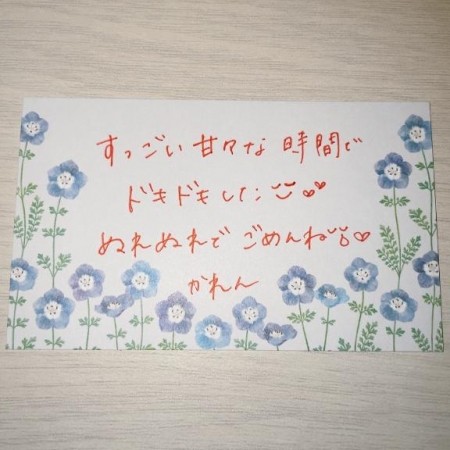 すっごい甘々な時間で
ドキドキした
ぬれぬれでごめんね
かれん